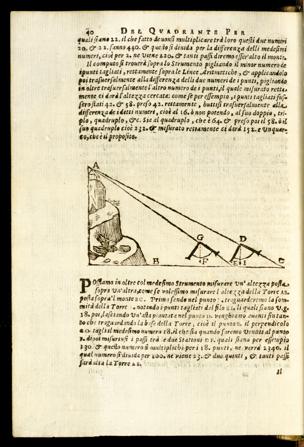 40 DEL QUADRANTE PER
quali siano 22. il che fatto deuonsi multiplicare trà loro questi due numeri
20. & 22. fanno 440. & questo si diuida per la differenza delli medesimi
numeri, cioè per 2. ne viene 220. & tanti passi diremo esser alto il monte.
Il computo si trouerà sopra lo Strumento pigliando il minor numero de
i punti tagliati, rettamente sopra le Linee Aritmetiche, & applicandolo
poi trasuersalmente alla differenza delli due numeri de i punti, pigliando
in oltre trasuersalmente l'altro numero de i punti, il quale misurato retta-
mente ci darà l'altezza cercata: come se per esempio, i punti tagliati fus-
sero stati 42. & 58. preso 42. rettamente, buttisi trasuersalmente alla
differenza de i detti numeri, cioè al 16. & non potendo, al suo doppio, tri-
plo, quadruplo, &c. Sia al quadruplo, che è 64. & preso poi il 58. ò il
suo quadruplo cioè 232. & misurato rettamente ci darà 152. e un quar-
to, che è il proposito.
A
G D
B F E I C
Possiamo in oltre col medesimo Strumento misurare vn' altezza posta
sopra vn'altra, come se volessimo misurare l'altezza della Torre
posta sopra'l monte
Prima sendo nel punto traguarderemo la som-
mità della Torre notando i punti tagliati dal filo, li quali siano v.g.
18. poi,
che traguardando la base della Torre, cioè il punto
tagli il medesimo numero 18. il che sia quando saremo venuti al punto
misurinsi i passi trà le due Stationi quali siano per esempio
130. & questo numero si multiplichi per i 18. punti, ne verrà 2340. il
qual numero si diuida per 100. ne viene 23. & due quinti, & tanti passi
sarà alta la Torre
Il